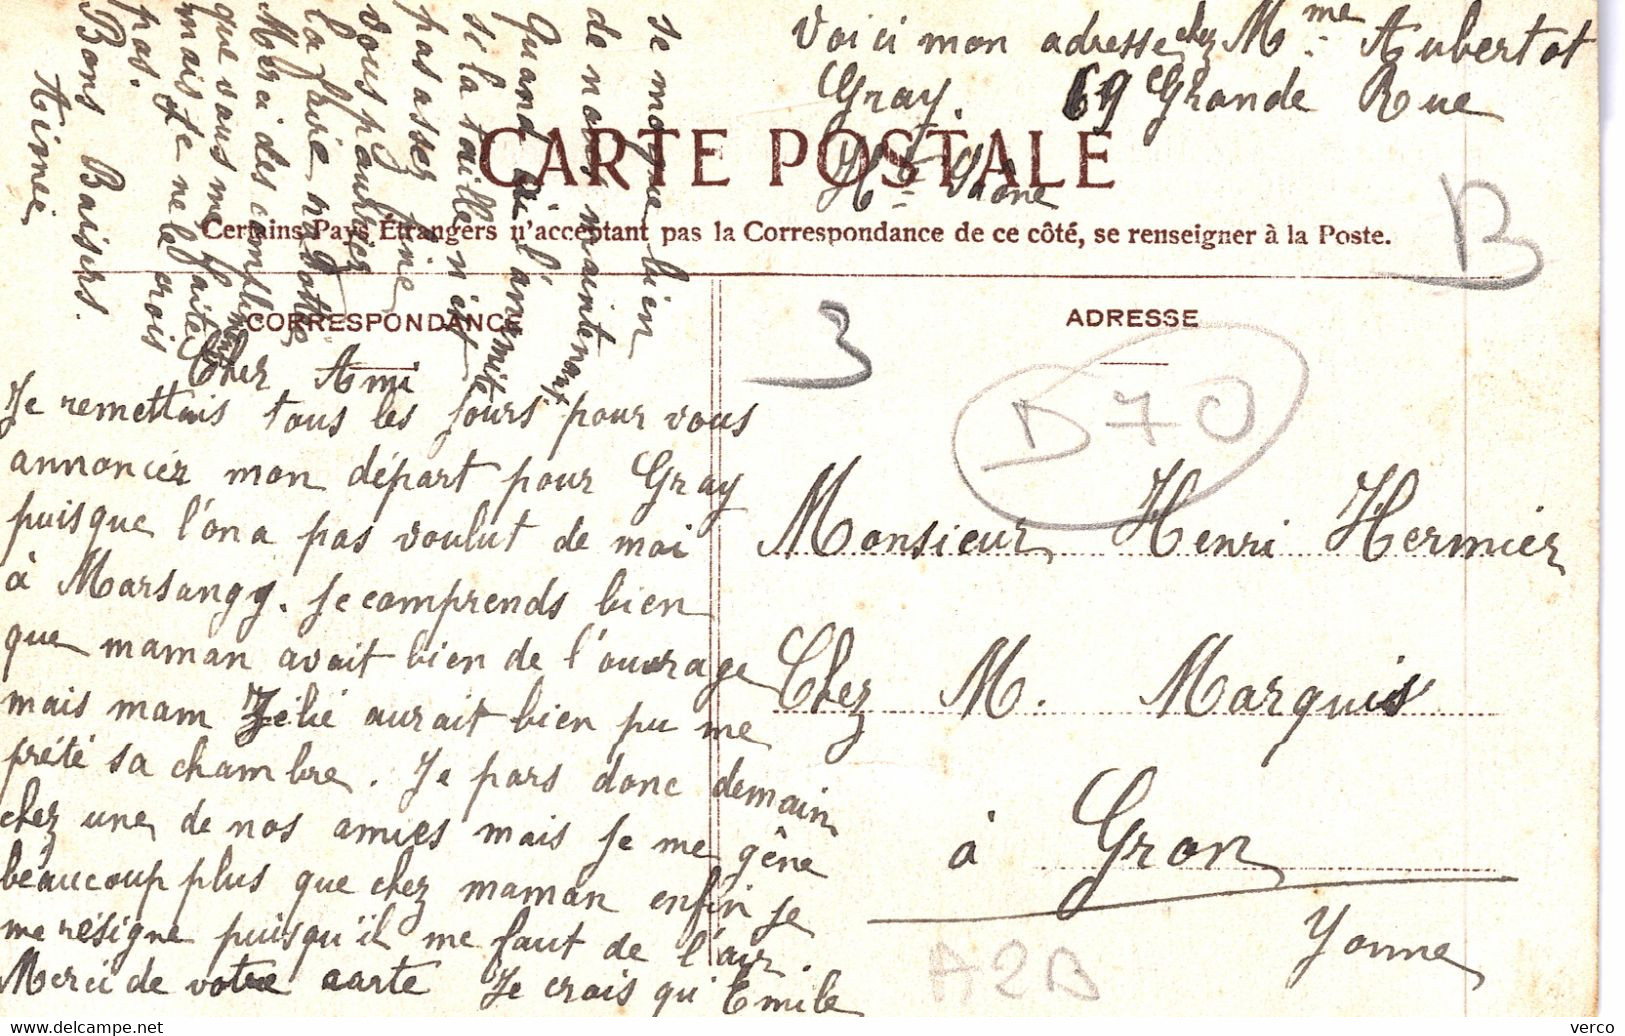 Voici mon adresse chez Mme Aubertot
Gray. 69 Grande Rue
Hte Saône
CARTE POSTALE
Certains Pays Étrangers n'acceptant pas la Correspondance de ce côté, se renseigner à la Poste.
B
CORRESPONDANCE
ADRESSE
3
D70
Cher Ami
Je remettais tous les jours pour vous
annoncer mon départ pour Gray
puisque l'on a pas voulut de moi
à Marsangy. Je comprends bien
que maman avait bien de l'ouvrage
mais mam Zélie aurait bien pu me
prété sa chambre. Je pars donc demain
chez une de nos amies mais je me gêne
beaucoup plus que chez maman enfin je
me résigne puisqu'il me faut de l'air.
Merci de votre carte Je crois qu'Emile
se moque bien
de nous maintenant
Quand à l'anémité
si la taille n'est
pas assez fine
vous pourriez
la faire
Merci des compliments
que vous me faites
mais je ne le crois
pas.
Bons Baisers.
Aimée
Monsieur Henri Hermier
Chez M. Marquis
à Gron
Yonne
A2B